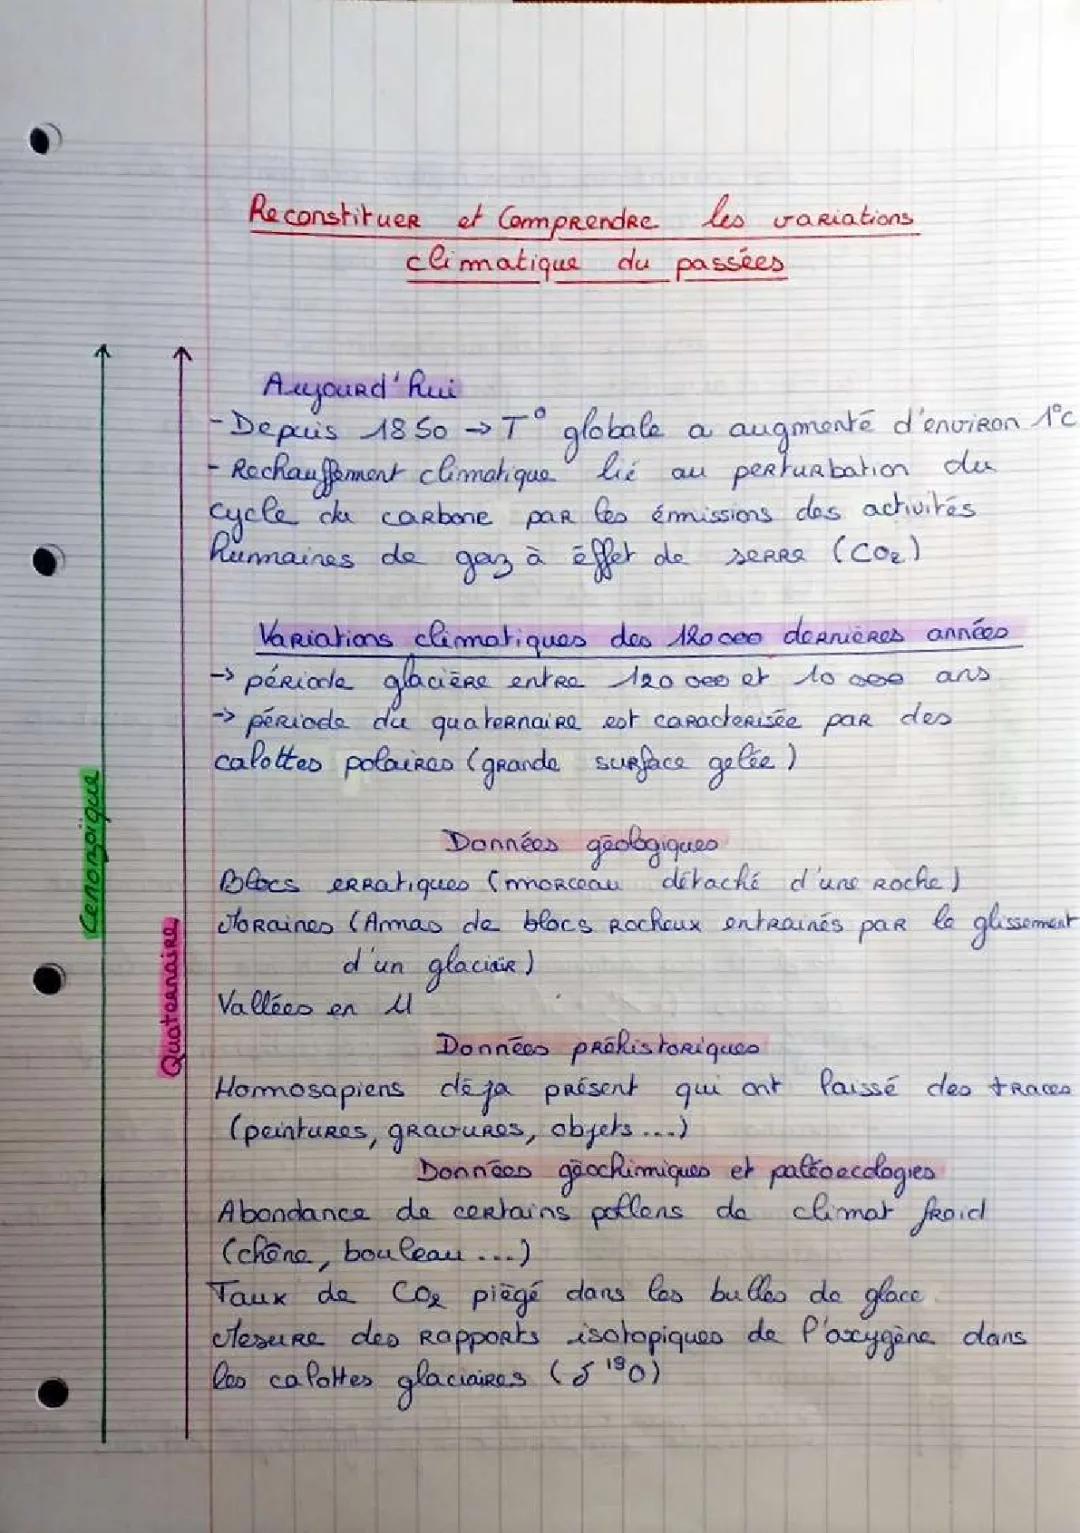 Reconstituer et Comprendre les variations
climatique du passées
Aujourd'hui
- Depuis 1850 → T° globale a augmenté d'environ 1°C
- Rechauffement climatique lié au perturbation du
cycle du carbone par les émissions des activités
humaines de gaz à éffet de serre (CO₂)
Variations climatiques des 120 000 dernières années
→ période glacière entre 120 000 et 10 000 ans
→ période du quaternaire est caracterisée par des
calottes polaires (grande surface gelée)
Données géologiques
Blocs erratiques (morceau détaché d'une roche)
Moraines (Amas de blocs rocheux entrainés par le glissement
d'un glaciair)
Vallées en U
Données préhistoriques
Homosapiens déja présent qui ont laissé des traces
(peintures, gravures, objets...)
Données géochimiques et paléoecologies
Abondance de certains pollens de climat froid
(chêne, bouleau...)
Taux de CO₂ piégé dans les bulles de glace.
Mesure des rapports isotopiques de l'oxygène dans
les calottes glaciaires (δ ¹⁸O)
Cenonzoïque
Quaternaire